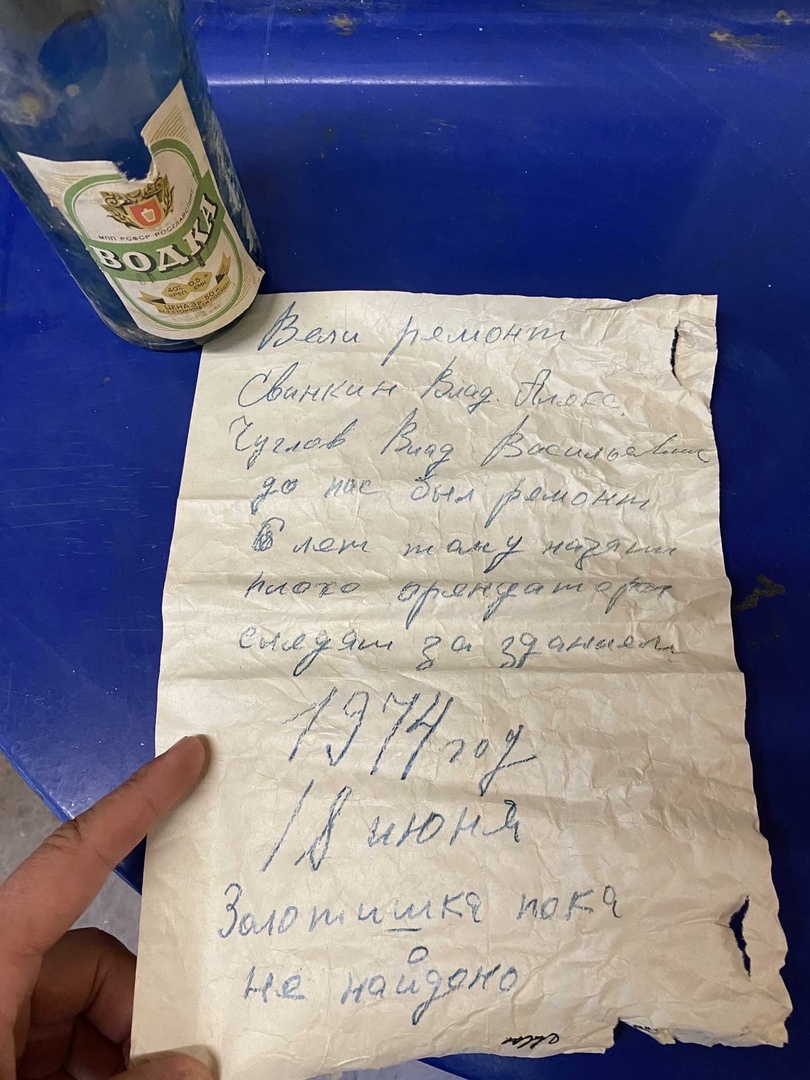 МПП РСФСР РОСГЛАВСПИРТ
ВОДКА
40% 0,5 л
КРЕП. ЕМК.
ЦЕНА 3 Р. 50 к.
Вели ремонт
Сванкин Влад. Алекс.
Чуглов Влад Васильевич
до нас был ремонт
6 лет тому назят
плохо арендаторы
следят за зданием
1974 год
18 июня
Золотишка пока
не найдено